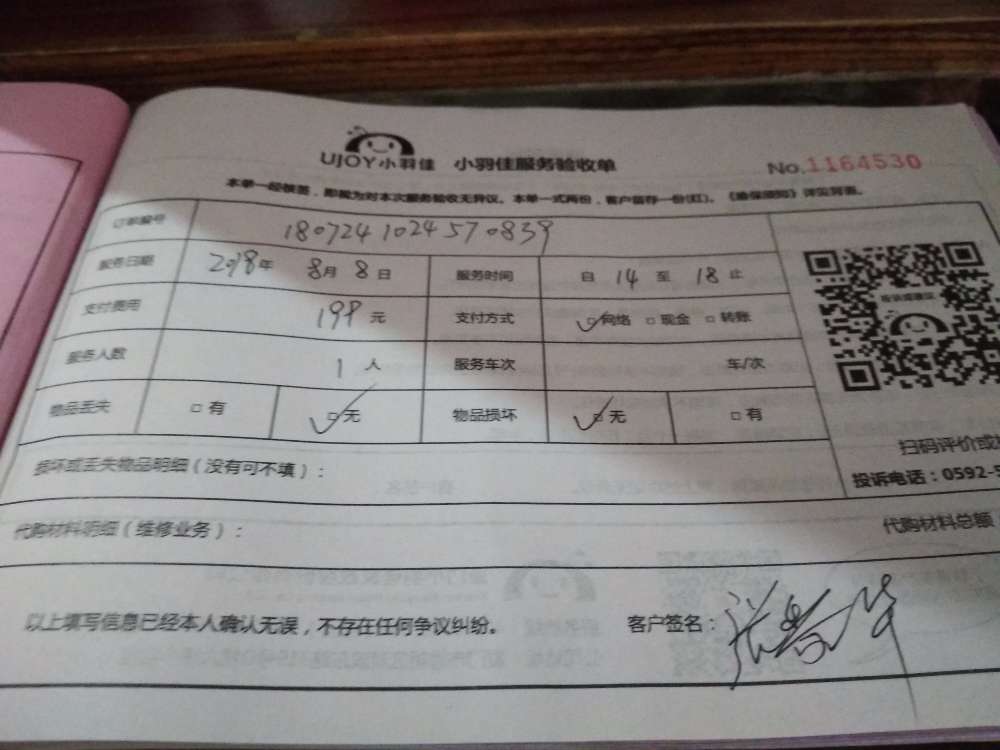 UJOY小羽佳 小羽佳服务验收单 No.1164530
本单一经签签，即视为对本次服务验收无异议。本单一式两份，客户留存一份(红)。《维保须知》详见背面。
订单编号 1807241024570839
服务日期 2018年 8月 8日 服务时间 自 14 至 18 止
支付费用 198 元 支付方式 ☑网络 □现金 □转账
服务人数 1 人 服务车次 车/次
物品丢失 □有 ☑无 物品损坏 ☑无 □有
扫码评价或
损坏或丢失物品明细（没有可不填）：
投诉电话：0592-5
代购材料明细（维修业务）：
代购材料总额
以上填写信息已经本人确认无误，不存在任何争议纠纷。 客户签名：